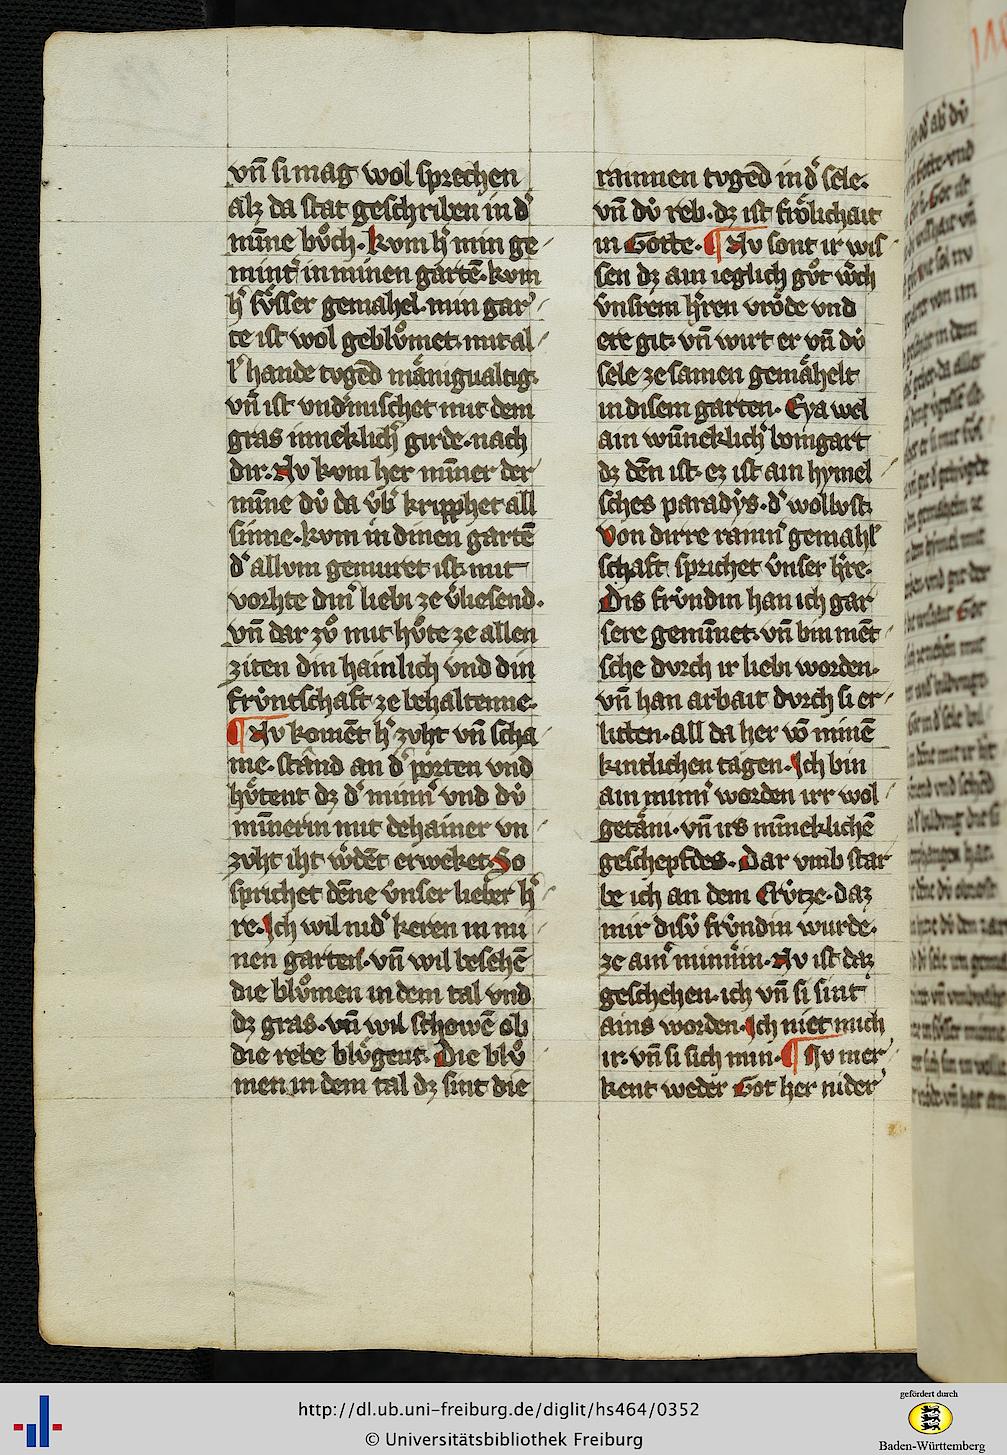 vn̄ si mag wol sprechen
alz da stat geschriben in dˀ
mīne bůch. kvm hˀ min ge
mintˀ in minen gartē. kvm
hˀ sv̊sser gemahel. min gar
te ist wol geblůmet. mit al
lˀ hande tvgēd mänigualtig.
vn̄ ist vndˀmischet mit dem
gras inneklichˀ girde. nach
dir. Nv kom her mīner der
mīne dv́ da v́bˀ kripphet all
sinne. kvm in dinen gartē
dˀ allvm gemvret ist. mit
vorhte dinˀ liebi ze vˀliesend.
vn̄ dar zů mit hůte ze allen
ziten din hainlich vnd din
frv́ntschaft ze behaltenne.
¶ Nv komēt hˀ zvht vn̄ scha
me. stând an dˀ porten vnd
hv̊tent dz dˀ minnˀ vnd dv́
mīnerin mit dehainer vn
zvht iht wˀdēt erweket. So
sprichet dēne v́nser lieber hˀ
re. Ich wil nidˀ keren in mi
nen garten. vn̄ wil besehē
die blůmen in dem tal vnd
dz gras. vn̄ wil schowē ob
die rebe blůgent. Die blů
men in dem tal dz sint die
rainnen tvgēd in dˀ sele.
vn̄ dv́ reb. dz ist frölichait
in Gotte. ¶ Nv sont ir wis
sen dz ain ieglich gůt wˀch
v́nsrem hˀren vröde vnd
ere git. vn̄ wirt er vn̄ dv́
sele ze samen gemähelt
in disem garten. Eya wel
ain wūneklichˀ bomgart
dz dēn ist. ez ist ain hymel
sches paradẏs. dˀ wollvst.
Von dirre rainnˀ gemahlˀ
schaft sprichet v́nser hˀre.
Dis frv́ndin han ich gar
sere gemīnet. vn̄ bin mēt
sche dvrch ir liebi worden.
vn̄ han arbait dvrch si er
litten. all da her vō minē
kintlichen tagen. Ich bin
ain minnˀ worden irr wol
getäni. vn̄ irs mīneklichē
geschepfdes. Dar vmb star
be ich an dem Crv́tze. daz
mir disv́ frv́ndin wurde.
ze ainˀ minnin. Nv ist daz
geschehen. ich vn̄ si sint
ains worden. Ich niet mich
ir. vn̄ si sich min. ¶ Nv mer
kent weder Got her nider
http://dl.ub.uni-freiburg.de/diglit/hs464/0352
© Universitätsbibliothek Freiburg
gefördert durch
Baden-Württemberg